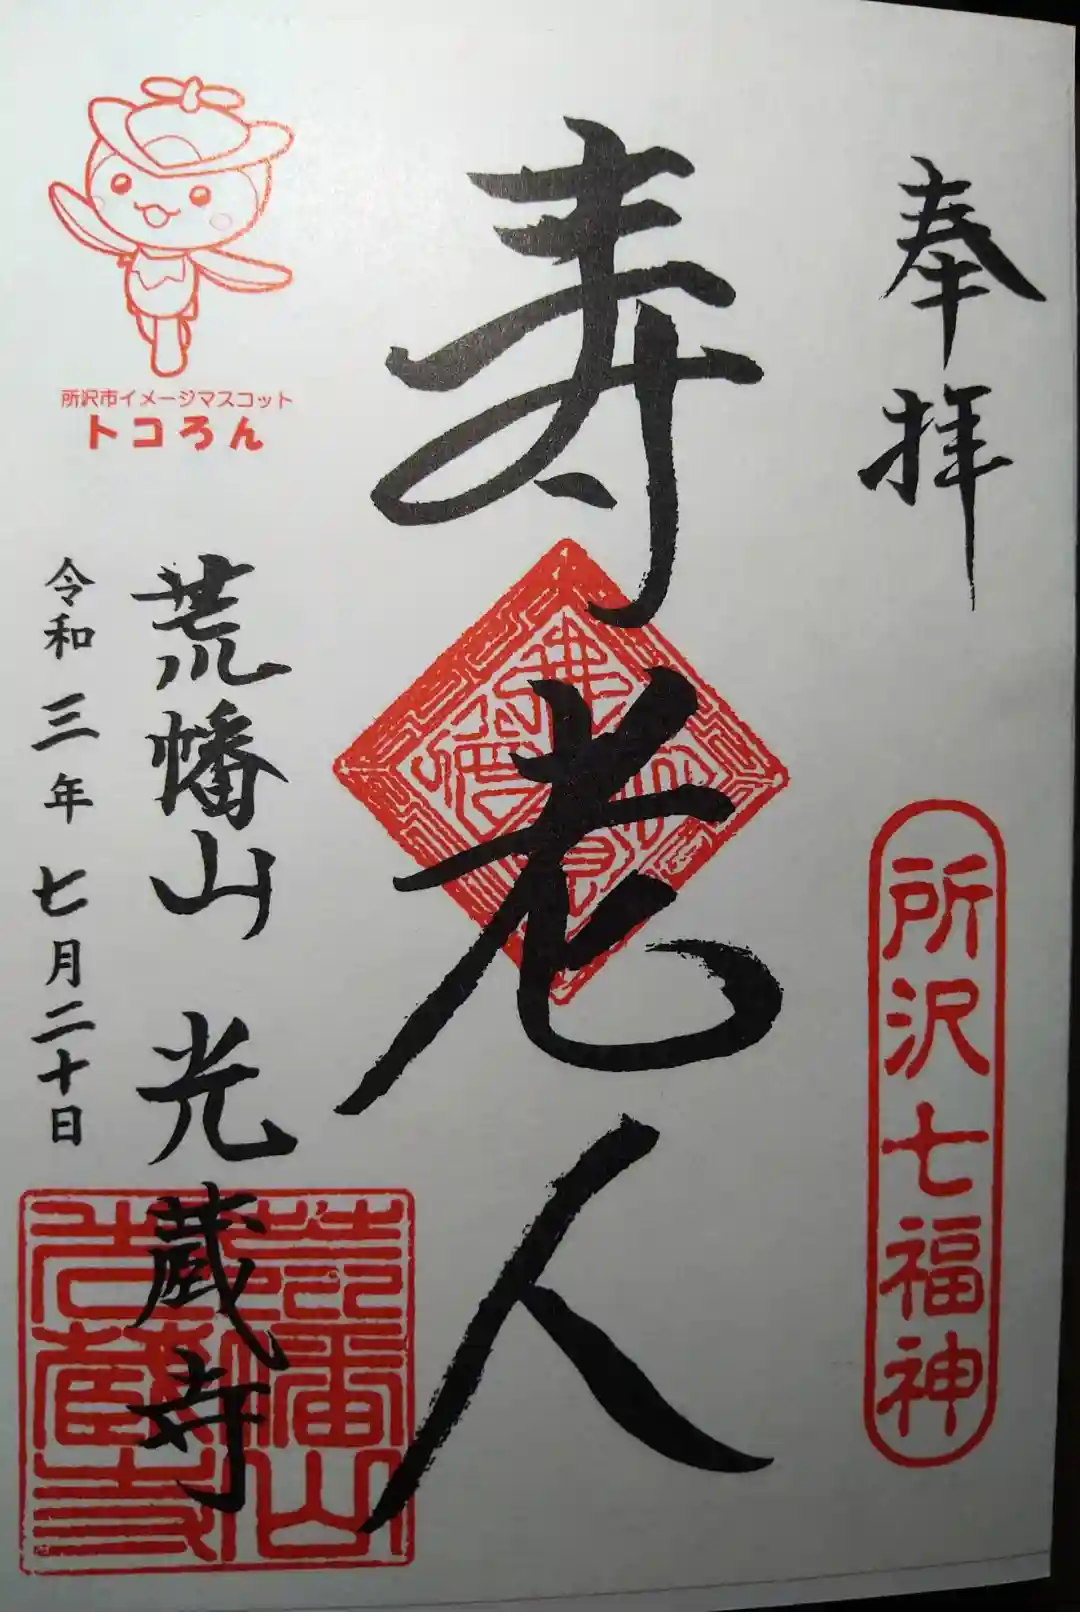 奉拝
所沢七福神
寿老人
所沢市イメージマスコット
トコろん
荒幡山 光蔵寺
令和三年七月二十日
荒幡山
光蔵寺